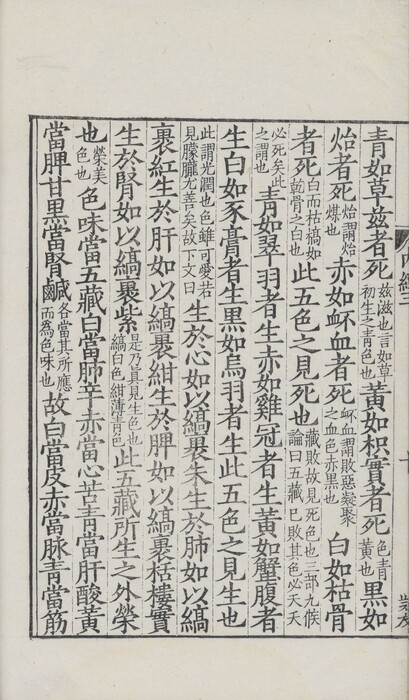 青如草茲者死茲滋也言如草初生之青色也黃如枳實者死色青黃也黑如
炲者死炲謂炲煤也赤如衃血者死衃血謂敗惡凝聚之血色赤黑也白如枯骨
者死白而枯槁如乾骨之白也此五色之見死也藏敗故見死色也三部九候論曰五藏已敗其色必夭夭
必死矣此之謂也青如翠羽者生赤如雞冠者生黃如蟹腹者
生白如豕膏者生黑如烏羽者生此五色之見生也
此謂光潤也色雖可愛若見朦朧尤善矣故下文曰生於心如以縞裹朱生於肺如以縞
裹紅生於肝如以縞裹紺生於脾如以縞裹栝樓實
生於腎如以縞裹紫是乃真見生色也縞白色紺薄青色此五藏所生之外榮
也榮美色也色味當五藏白當肺辛赤當心苦青當肝酸黃
當脾甘黑當腎鹹各當其所應而為色味也故白當皮赤當脉青當筋
內經三